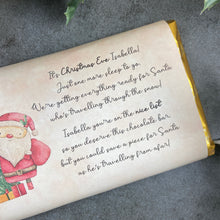 It's Christmas Eve Isabella!
Just one more sleep to go,
We're getting everything ready for Santa
who's travelling through the snow!
Isabella you're on the nice list
so you deserve this chocolate bar
but you could save a piece for Santa
as he's travelling from afar!